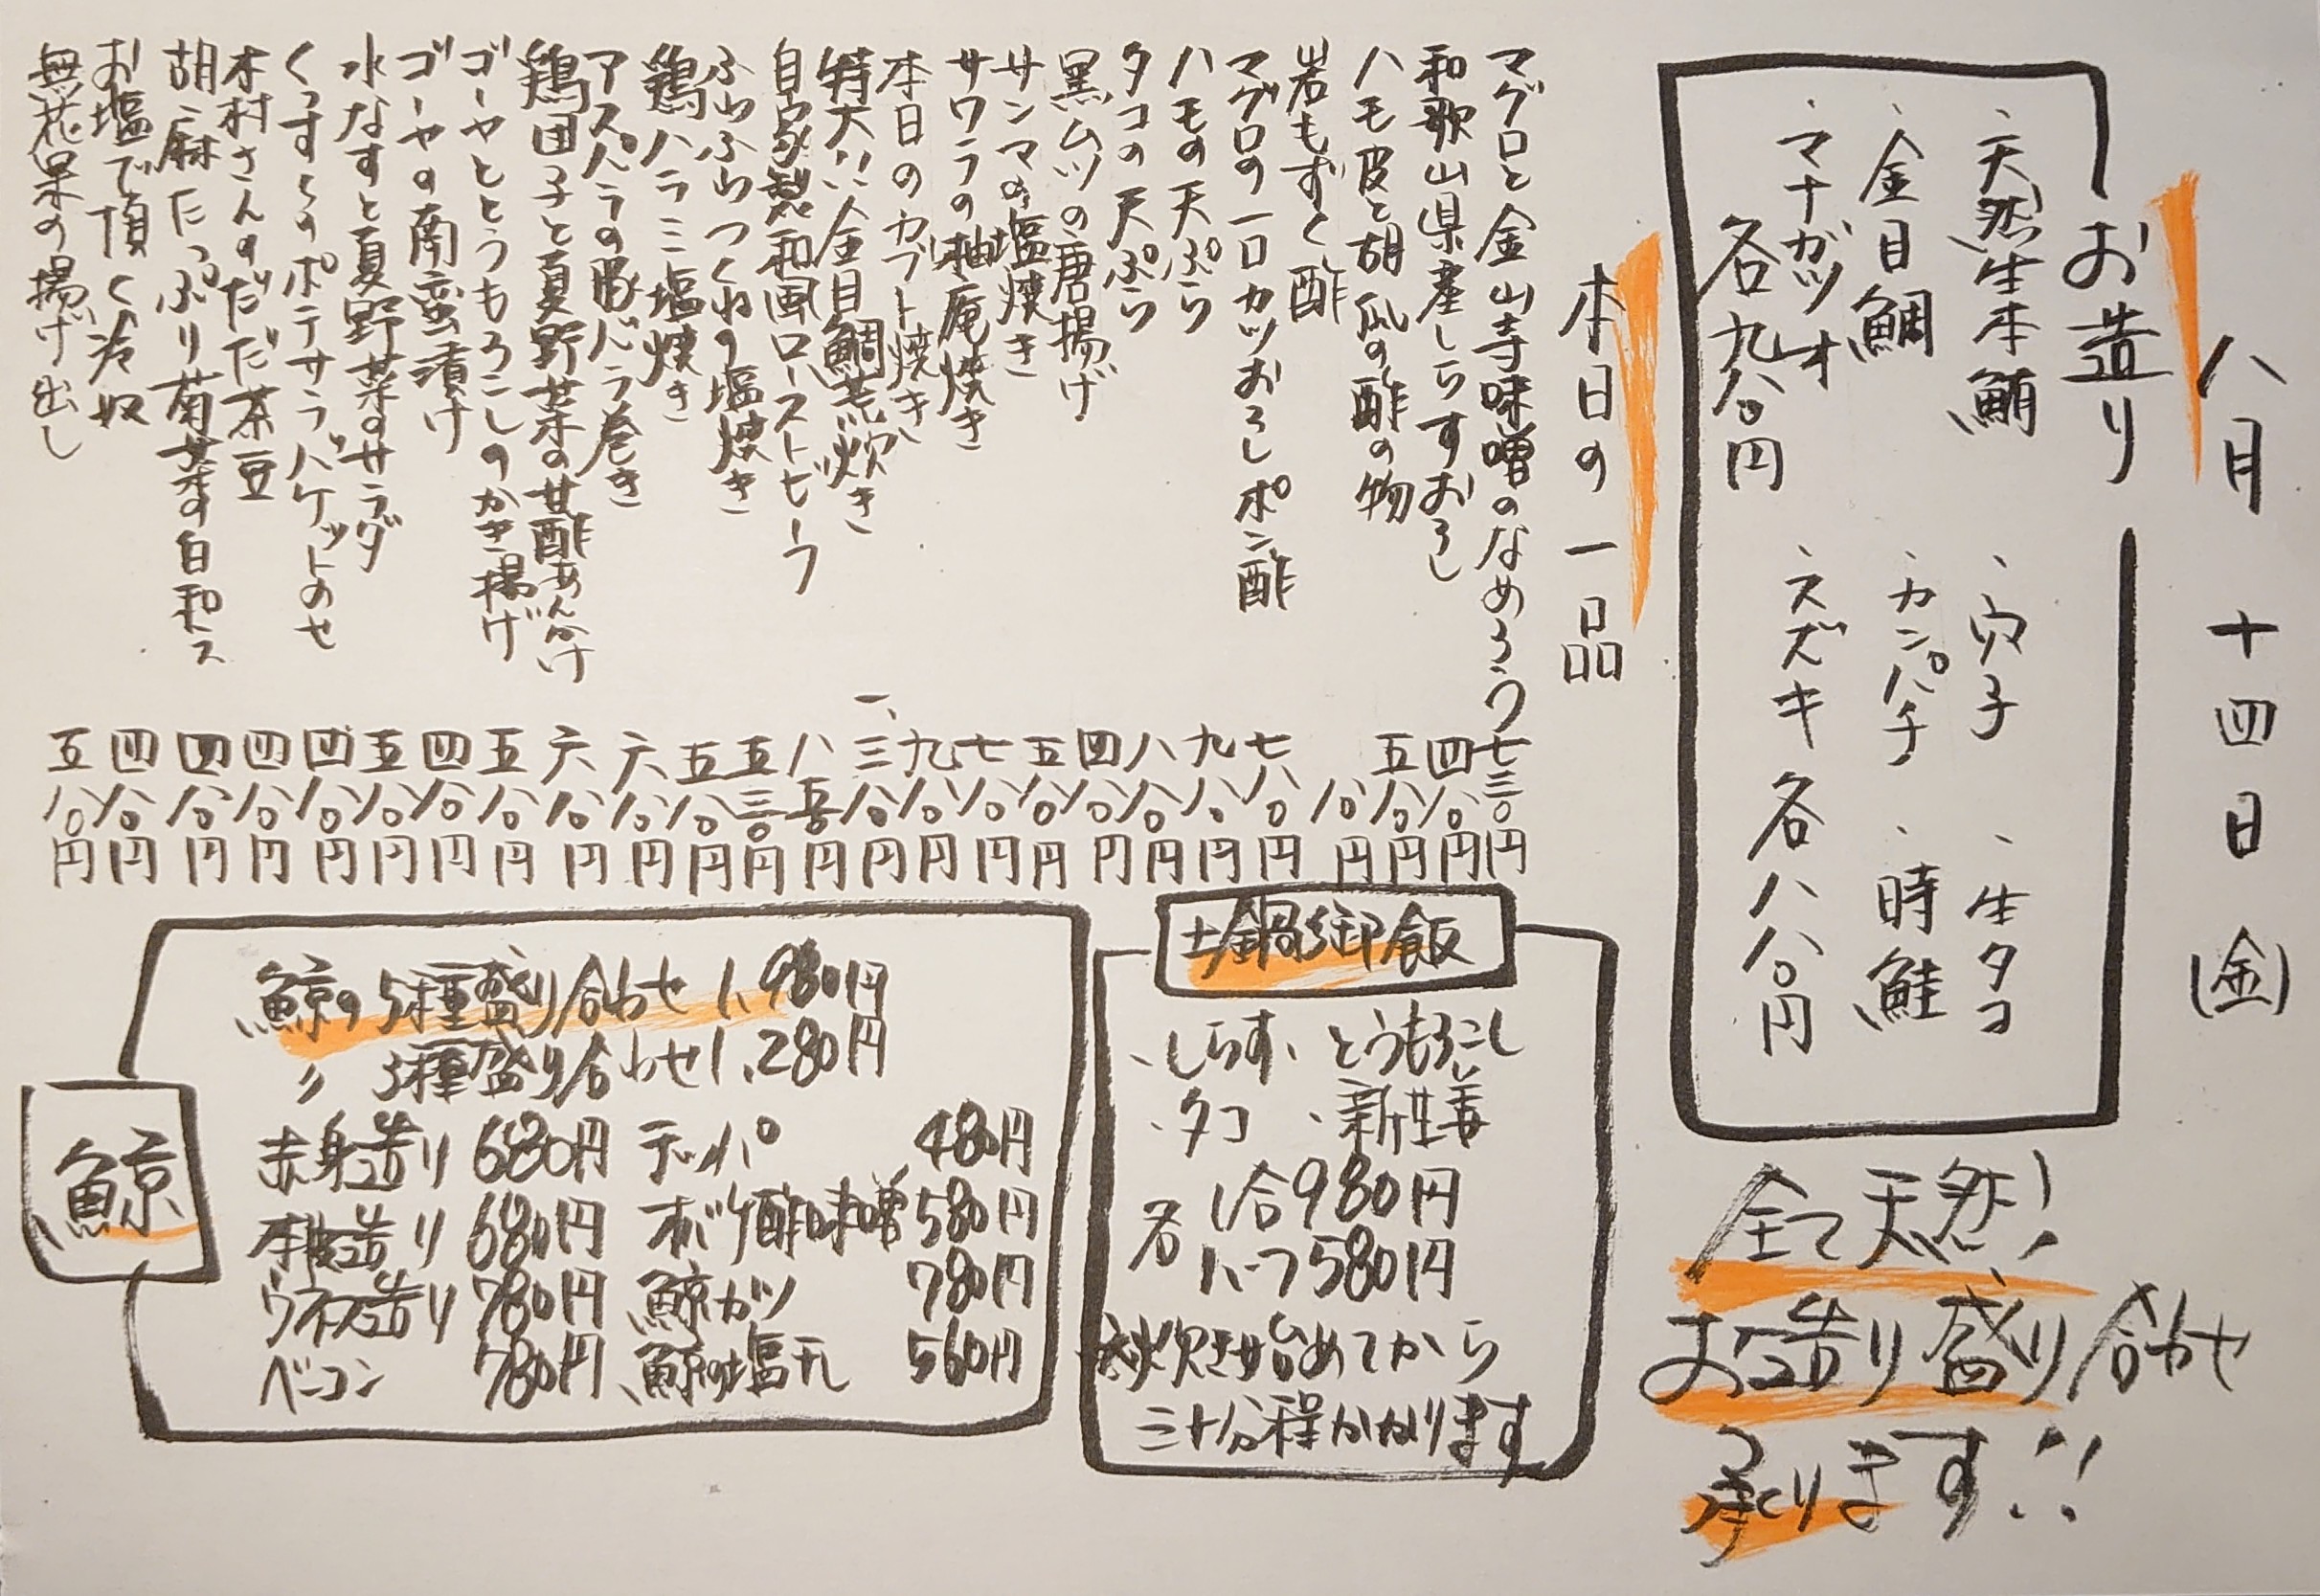 八月十四日(金)
お造り
・天然生本鮪 ・穴子 ・生タコ
・金目鯛 ・カンパチ ・時鮭
・マナガツオ ・スズキ 各八八〇円
各九八〇円
全て天然!
お造り盛り合わせ
承ります!!
本日の一品
マグロと金山寺味噌のなめろう 七三〇円
和歌山県産しらすおろし 四八〇円
ハモ皮と胡瓜の酢の物 五八〇円
岩もずく酢 八〇円
マグロの一口カツおろしポン酢 七八〇円
ハモの天ぷら 九八〇円
タコの天ぷら 八八〇円
黒ムツの唐揚げ 四八〇円
サンマの塩焼き 五八〇円
サワラの柚庵焼き 七八〇円
本日のカブト焼き 九八〇円
特大!!金目鯛荒炊き 一、三八〇円
自家製和風ローストビーフ 八五〇円
ふわふわつくねの塩焼き 五三〇円
鶏ハラミ塩焼き 五八〇円
アスパラの豚バラ巻き 六八〇円
鶏団子と夏野菜の甘酢あんかけ 六八〇円
ゴーヤととうもろこしのかき揚げ 五八〇円
ゴーヤの南蛮漬け 四八〇円
水なすと夏野菜のサラダ 五八〇円
くんすたのポテサラ、バケットのせ 四八〇円
木村さんのだだ茶豆 四八〇円
胡麻たっぷり菊菜の白和え 四八〇円
お塩で頂く冷奴 四八〇円
無花果の揚げ出し 五八〇円
土鍋御飯
・しらす ・とうもろこし
・タコ ・新生姜
各 1合980円
ハーフ580円
炊き始めてから
三十分程かかります
鯨
鯨の5種盛り合わせ 1,980円
〃 3種盛り合わせ 1,280円
赤身造り 680円 テッパ 480円
本皮造り 680円 オバケ酢味噌 580円
ウネス造り 780円 鯨カツ 780円
ベーコン 780円 鯨の塩干し 560円